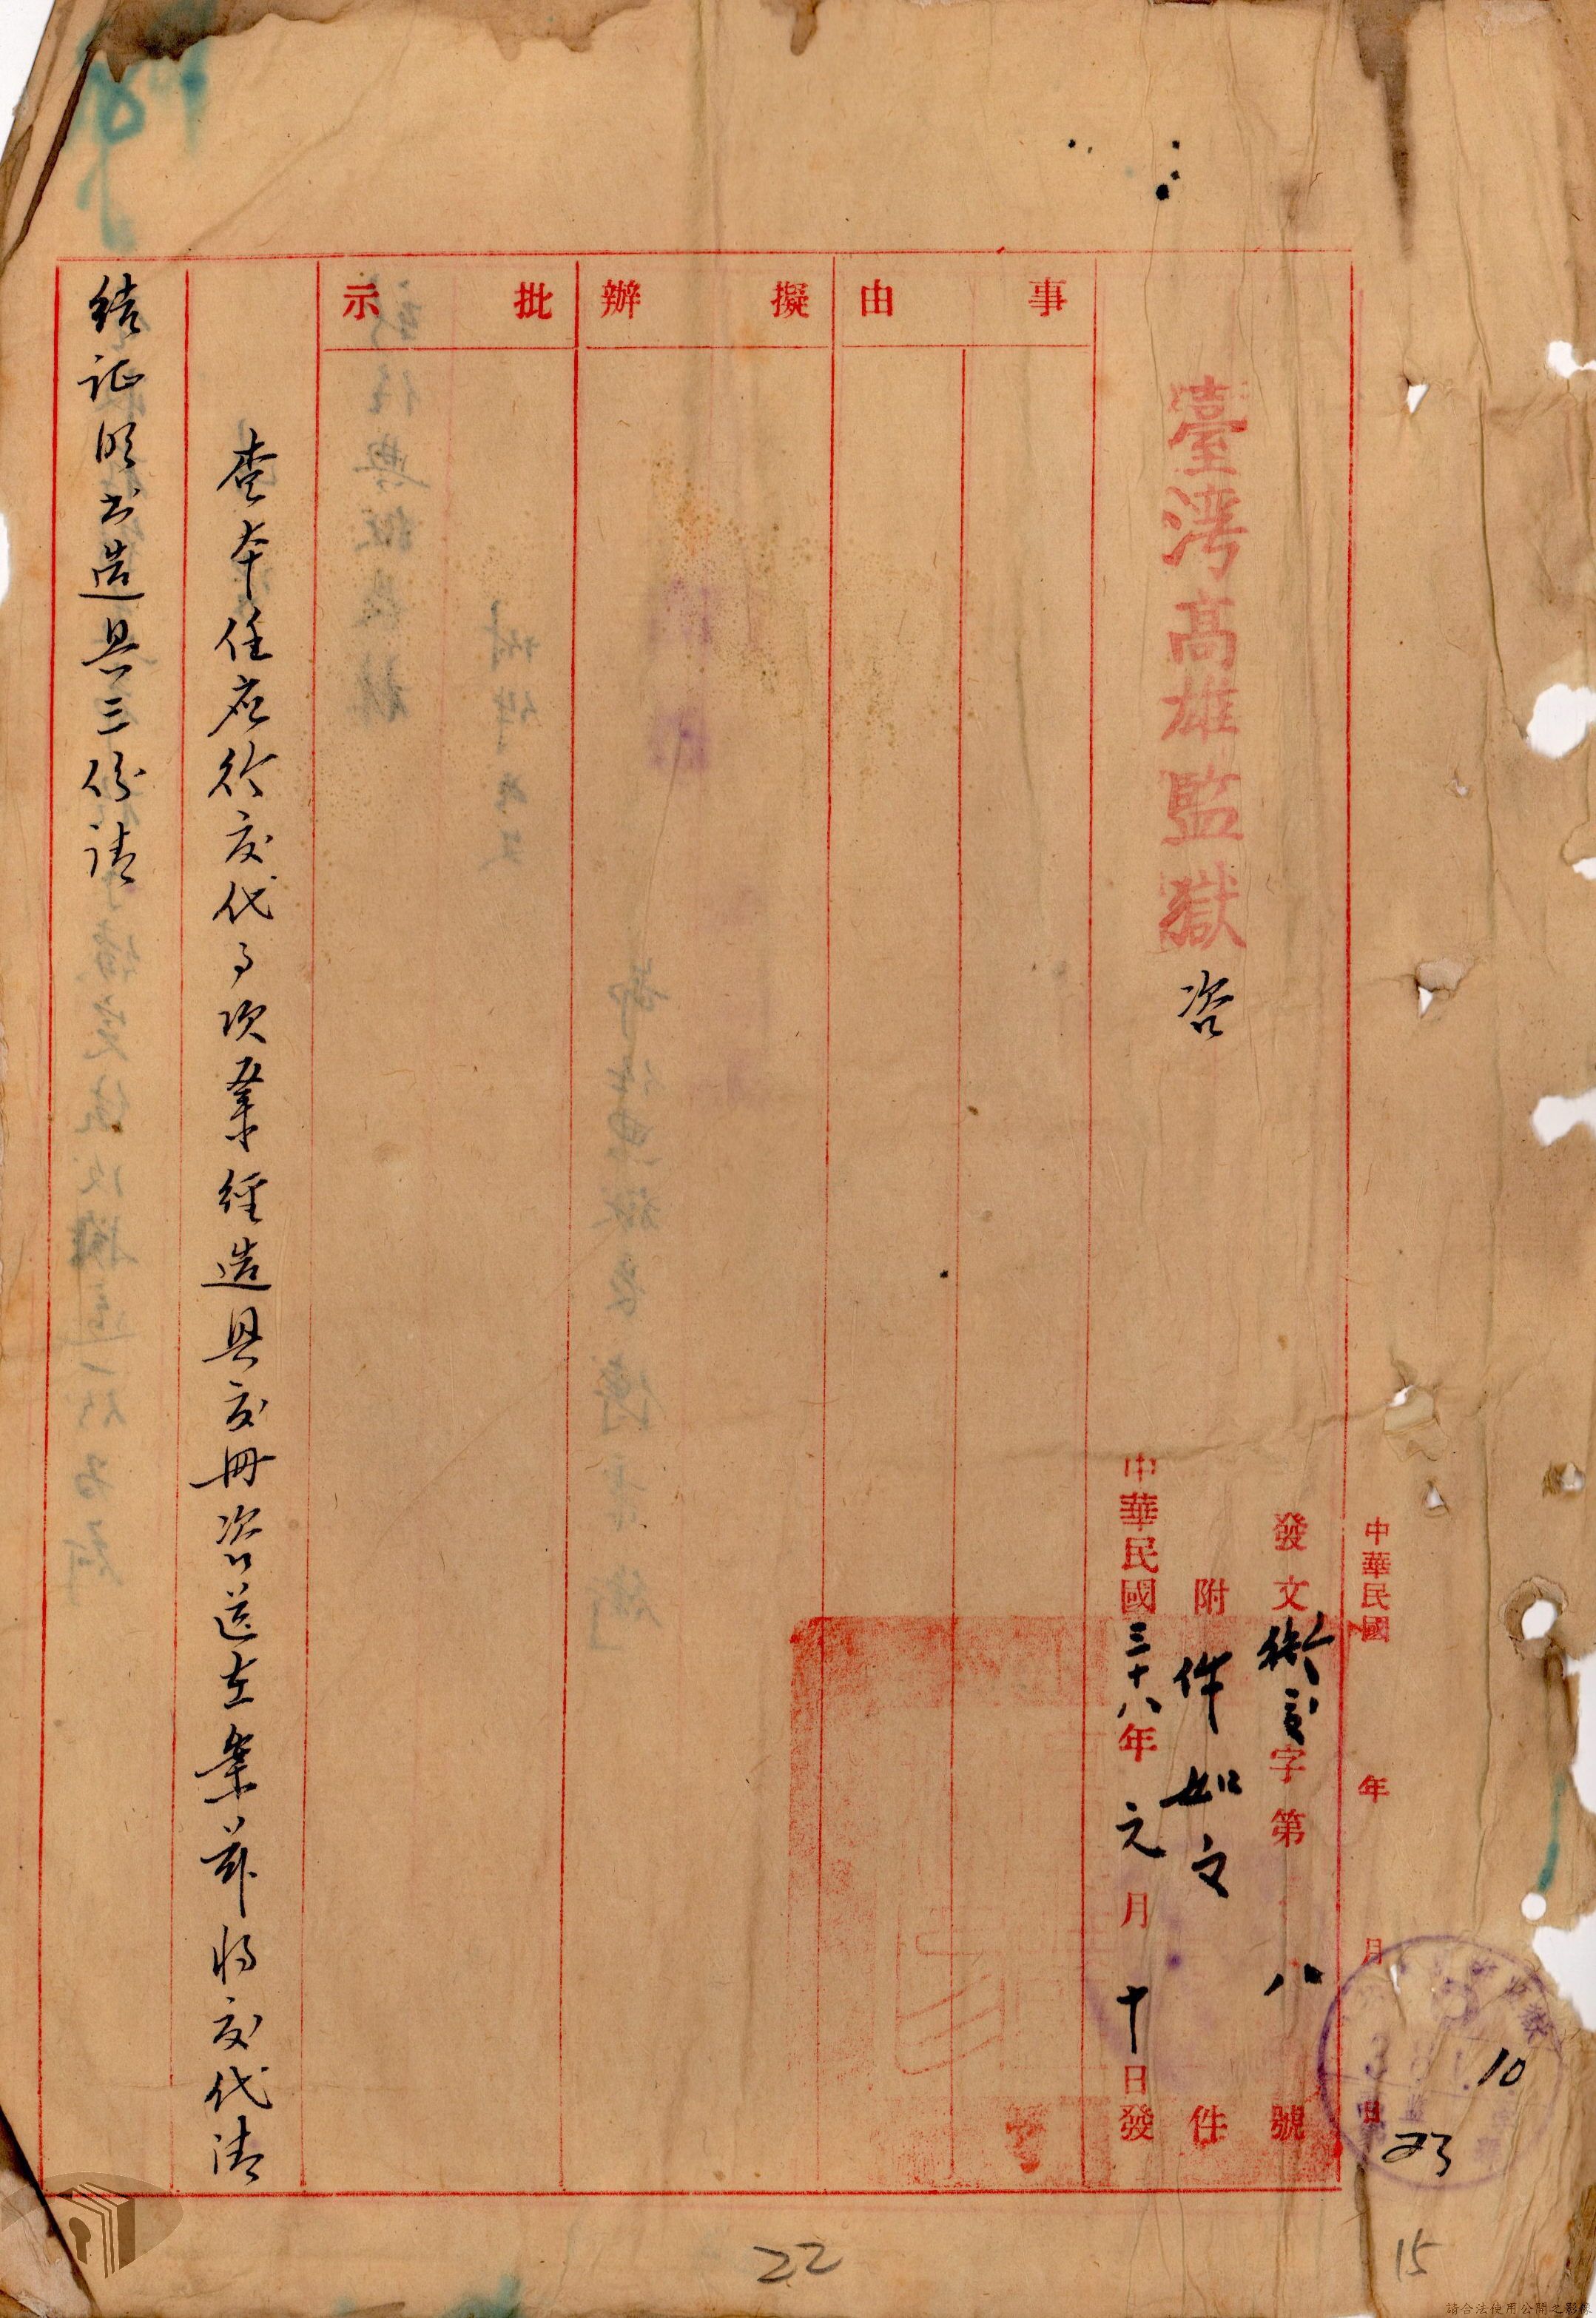 中華民國 年 月 日
10
23
發文 字第 八 號
附件如文 件
中華民國三十八年元月十日發
臺灣高雄監獄 咨
事由
擬辦
批示
查本任應行交代事項業經造具交冊咨送在案茲將交代清
結証明書造具三份請
22
15
請合法使用公開之影像